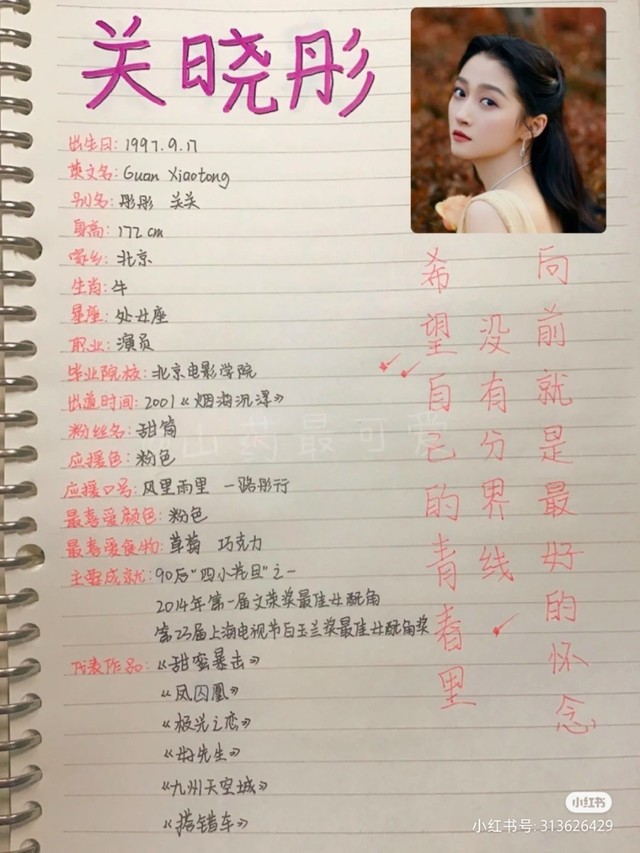 关晓彤
出生日: 1997.9.17
英文名: Guan Xiaotong
别名: 彤彤 关关
身高: 172cm
家乡: 北京
生肖: 牛
星座: 处女座
职业: 演员
毕业院校: 北京电影学院
出道时间: 2001《烟海沉浮》
粉丝名: 甜筒
应援色: 粉色
应援口号: 风里雨里 一路彤行
最喜爱颜色: 粉色
最喜爱食物: 草莓 巧克力
主要成就: 90后"四小花旦"之一
2014年第一届文荣奖最佳女配角
第23届上海电视节白玉兰奖最佳女配角奖
代表作品:《甜蜜暴击》
《凤囚凰》
《极光之恋》
《好先生》
《九州天空城》
《搭错车》
希望自己的青春里
没有分界线
向前就是最好的怀念
山药最可爱
小红书
小红书号: 313626429